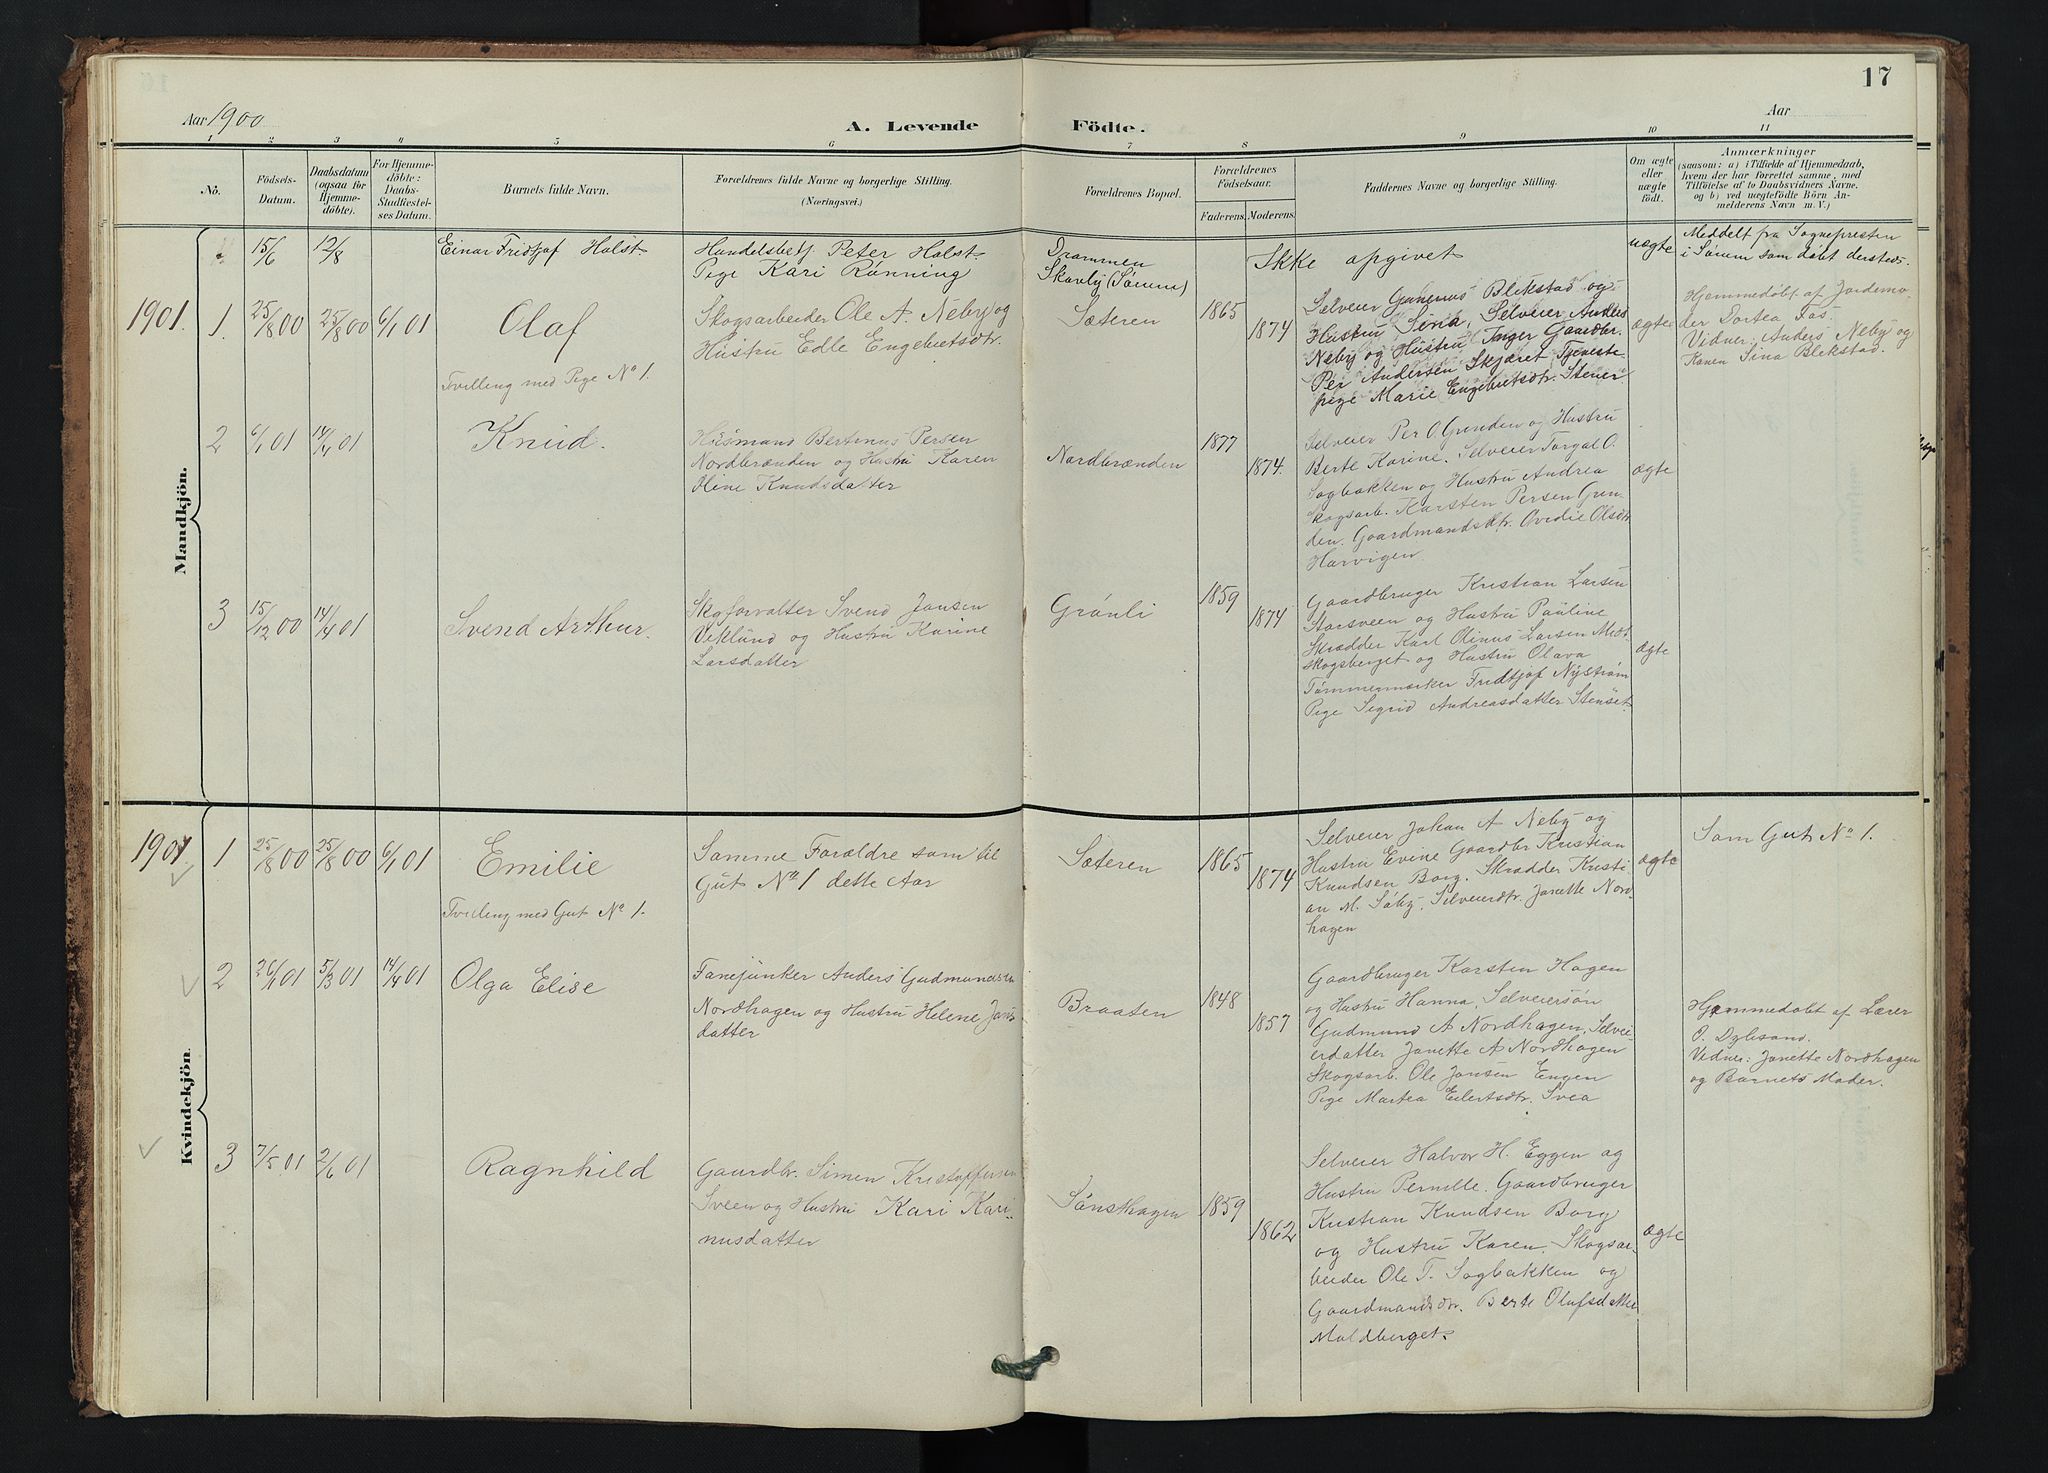 17
Aar 1900
A. Levende
Födte.
Aar
1 2 3 4 5 6 7 8 9 10 11
No.
Födsels-
Datum.
Daabsdatum
(ogsaa for
Hjemme-
döbte).
For Hjemme-
döbte:
Daabs-
Stadfæstel-
ses Datum.
Barnets fulde Navn.
Forældrenes fulde Navne og borgerlige Stilling.
(Næringsvei.)
Forældrenes Bopæl.
Forældrenes
Födselsaar.
Faderens.
Moderens.
Faddernes Navne og borgerlige Stilling.
Om ægte
eller
uægte
födt.
Anmærkninger
(saasom: a) i Tilfælde af Hjemmedaab,
hvem der har forrettet samme, med
Tilföielse af to Daabsvidners Navne.
og b) ved uægtefödte Börn An-
melderens Navn m. V.)
Mandkjön.
15/6
12/8
Einar Fridtjof Halst
Handelsbetj Peter Halst
Pige Kari Rønning
Drammen
Skarly (Sørum)
Ikke opgivet
uægte
Meddelt fra Sognepresten
i Sørum som døbt dersteds.
1901.
1
25/8 00
25/8 00
6/1 01
Olaf
Tvilling med Pige No 1.
Skogsarbeider Ole A Neby og
Hustru Edle Engebretsdtr.
Sæteren
1865
1874
Selveier Gunerius Blekstad og
Hustru Sina, Selveier Anders
Neby og Hustru Inger Gaardbr.
Per Andersen Skjæret, Tjeneste-
pige Marie Engebretsdtr. Stener
ægte
Hjemmedøbt af Jordemo-
der Dortea Fos.
Vidner: Anders Neby og
Konen Sina Blekstad.
2
6/1 01
14/4 01
Knud.
Husmand Bertinus Persen
Nordbrænden og Hustru Karen
Oline Knudsdatter
Nordbrænden
1877
1874.
Selveier Per O. Grenden og Hustru
Berte Karine. Selveier Torgal O.
Sagbakken og Hustru Andrea
Skogsarb. Karsten Persen Gren-
den. Gaardmandsdtr. Ovedie Olsdtr
Harvigen
ægte
3
15/12 00
14/4 01
Svend Arthur.
Skgforvalter Svend Jansen
Viklund og Hustru Karine
Larsdatter
Grønli
1859
1874
Gaardbruger Kristian Larsen
Storsveen og Hustru Pauline
Skrædder Karl Olinus Larsen Midt-
skogsberget og Hustru Olava
Tømmermærker Fridtjof Nystrøm
Pige Sigrid Andreasdatter Stenset.
ægte
Kvindekjön.
1901
1
25/8 00
25/8 00
6/1 01
Emilie
Tvilling med Gut No 1.
Samme Forældre som til
Gut No 1 dette Aar
Sæteren
1865
1874
Selveier Johan A Neby og
Hustru Evine Gaardbr Kristian
Knudsen Borg. Skrædder Kristi-
an M. Søby, Selveierdtr. Janette Nord-
hagen
ægte
Som Gut No 1.
2
26/1 01
5/3 01
14/4 01
Olga Elise
Fanejunker Anders Gudmundsen
Nordhagen og Hustru Helene Jans-
datter
Braaten
1848
1857
Gaardbruger Karsten Hagen
og Hustru Hanna, Selveiersøn
Gudmund A Nordhagen, Selvei-
erdatter Janette A Nordhagen
Skogsarb. Ole Jansen Engen
Pige Martea Eilertsdtr. Svea
Hjemmedøbt af Lærer
O. Dylesand.
Vidner: Janette Nordhagen
og Barnets Moder.
3
7/5 01
2/6 01
Ragnhild
Gaardbr. Simen Kristoffersen
Sveen og Hustru Kari Kari-
nusdatter
Sønsthagen
1859
1862
Selveier Halvor H. Eggen og
Hustru Pernille. Gaardbruger
Kristian Knudsen Borg
og Hustru Karen. Skogsar-
beider Ole T. Sagbakken og
Gaardmandsdtr. Berte Olufsdatter
Moldberget.
ægte